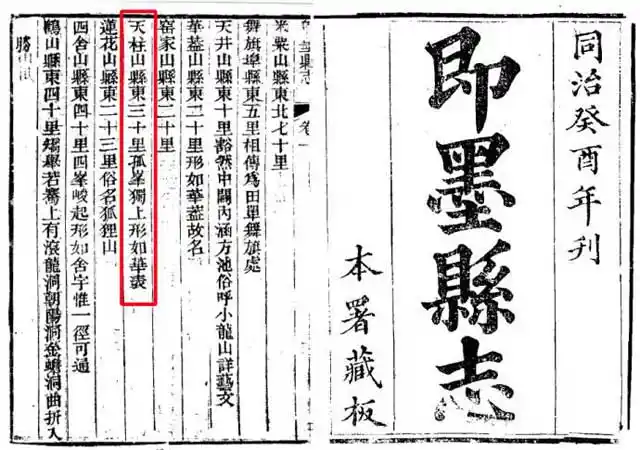 同治癸酉年刊
即墨縣志
本署藏板
卷一
米粟山縣東北七十里
舞旗埠縣東五里相傳為田單舞旗處
天井山縣東十里豁然中闢內涵方池俗呼小龍山詳藝文
華蓋山縣東二十里形如華蓋故名
窑家山縣東二十里
天柱山縣東三十里孤峯獨上形如華表
蓮花山縣東二十三里俗名狐狸山
四舍山縣東四十里四峯峻起形如舍字惟一徑可通
鶴山縣東四十里翥舉若騫上有滾龍洞朝陽洞金蟾洞曲折入
勝